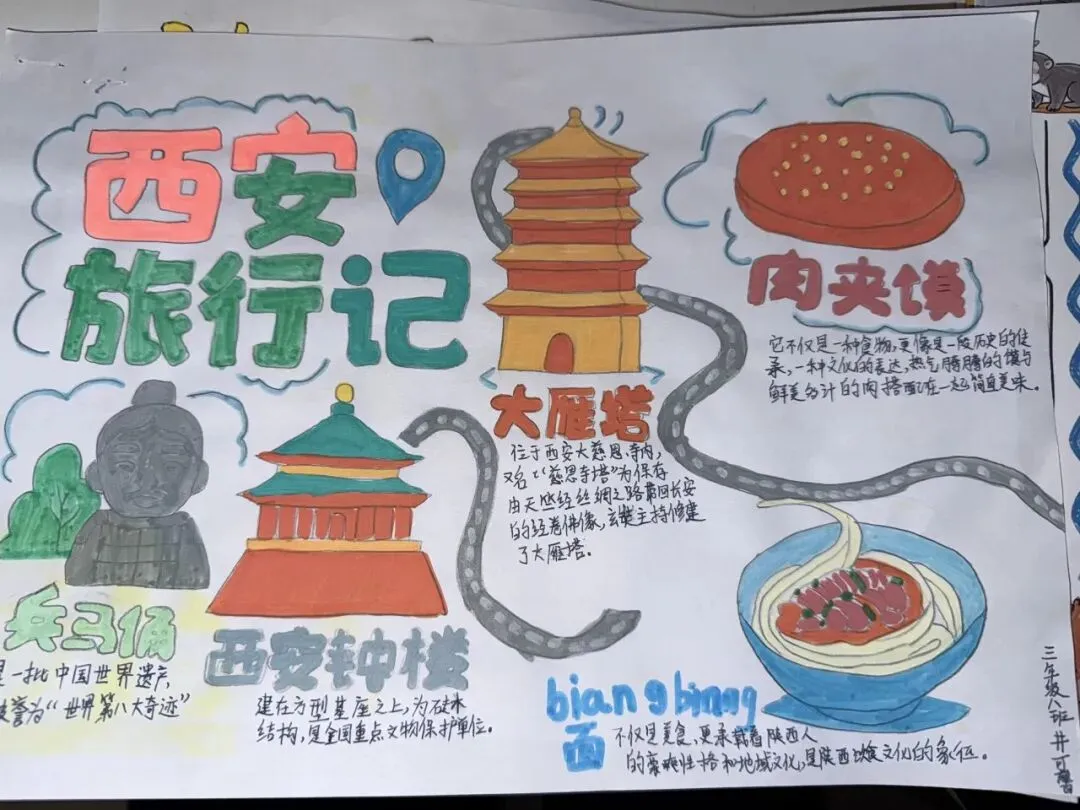 西安
旅行记
大雁塔
位于西安大慈恩寺内,
又名“慈恩寺塔”为保存
由天竺经丝绸之路带回长安
的经卷佛像,玄奘主持修建
了大雁塔。
肉夹馍
它不仅是一种食物,更像是一段历史的传
承,一种文化的表达,热气腾腾的馍与
鲜美多汁的肉搭配在一起简直美味。
兵马俑
是一批中国世界遗产,
被誉为“世界第八大奇迹”
西安钟楼
建在方型基座之上,为砖木
结构,是全国重点文物保护单位。
biangbiang
面
不仅是美食,更承载着陕西人
的豪爽性格和地域文化,是陕西饮食文化的象征。
三年级八班 井可